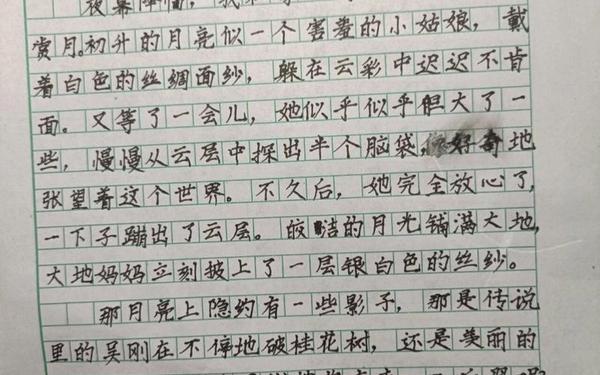 夜幕降临，我
赏月。初升的月亮似一个害羞的小姑娘，戴
着白色的丝绸面纱，躲在云彩中迟迟不肯
面。又等了一会儿，她似乎似乎胆大了一
些，慢慢从云层中探出半个脑袋，好奇地
张望着这个世界。不久后，她完全放心了，
一下子蹦出了云层。皎洁的月光铺满大地，
大地妈妈立刻披上了一层银白色的丝纱。
那月亮上隐约有一些影子，那是传说
里的吴刚在不停地破桂花树，还是美丽的